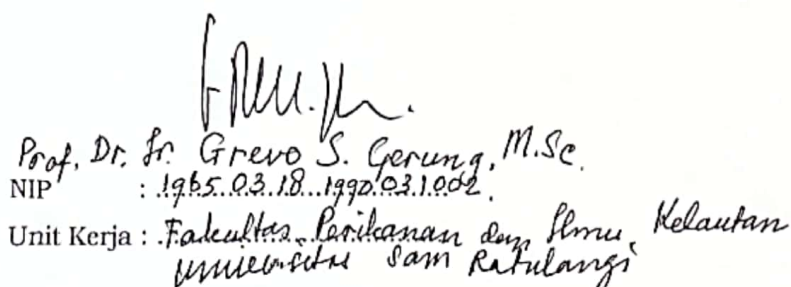 Prof. Dr. Ir. Grevo S. Gerung, M.Sc.
NIP : 1965.03.18.1990.03.1.002.
Unit Kerja : Fakultas Perikanan dan Ilmu Kelautan
Universitas Sam Ratulangi